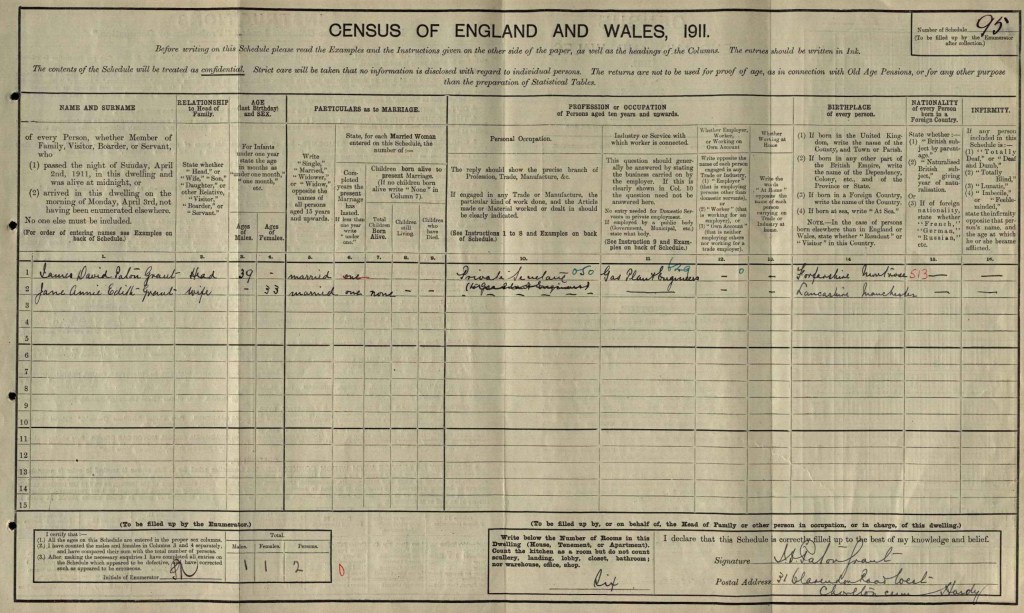 CENSUS OF ENGLAND AND WALES, 1911.
Number of Schedule 95
(To be filled up by the Enumerator after collection.)
Before writing on this Schedule please read the Examples and the Instructions given on the other side of the paper, as well as the headings of the Columns. The entries should be written in Ink.
The contents of the Schedule will be treated as confidential. Strict care will be taken that no information is disclosed with regard to individual persons. The returns are not to be used for proof of age, as in connection with Old Age Pensions, or for any other purpose
than the preparation of Statistical Tables.
NAME AND SURNAME
of every Person, whether Member of
Family, Visitor, Boarder, or Servant,
who
(1) passed the night of Sunday, April
2nd, 1911, in this dwelling and
was alive at midnight, or
(2) arrived in this dwelling on the
morning of Monday, April 3rd, not
having been enumerated elsewhere.
No one else must be included.
(For order of entering names see Examples on
back of Schedule.)
RELATIONSHIP
to Head of
Family.
State whether
"Head," or
"Wife," "Son,"
"Daughter," or
other Relative,
"Visitor,"
"Boarder," or
"Servant."
AGE
(last Birthday)
and SEX.
For Infants
under one year
state the age
in months as
"under one month,"
"one month,"
etc.
Ages of Males.
Ages of Females.
PARTICULARS as to MARRIAGE.
Write
"Single,"
"Married,"
"Widower,"
or "Widow,"
opposite the
names of
all persons
aged 15 years
and upwards.
State, for each Married Woman
entered on this Schedule, the
number of :—
Completed
years the
present
Marriage
has
lasted.
If less than
one year
write
"under
one."
Children born alive to
present Marriage.
(If no children born
alive write "None" in
Column 7).
Total Children Born Alive.
Children still Living.
Children who have Died.
PROFESSION or OCCUPATION
of Persons aged ten years and upwards.
Personal Occupation.
The reply should show the precise branch of
Profession, Trade, Manufacture, &c.
If engaged in any Trade or Manufacture, the
particular kind of work done, and the Article
made or Material worked or dealt in should
be clearly indicated.
(See Instructions 1 to 8 and Examples on back
of Schedule.)
Industry or Service with
which worker is connected.
This question should generally
be answered by stating
the business carried on by
the employer. If this is
clearly shown in Col. 10
the question need not be
answered here.
No entry needed for Domestic Servants
in private employment.
If employed by a public body
(Government, Municipal, etc.)
state what body.
(See Instruction 9 and Examples
on back of Schedule.)
Whether Employer,
Worker,
or Working on
Own Account
Whether
Working at
Home.
Write the
words
"At Home"
opposite the
name of each
person
carrying on
Trade or
Industry at
home.
BIRTHPLACE
of every person.
(1) If born in the United Kingdom,
write the name of the
County, and Town or Parish.
(2) If born in any other part of
the British Empire, write
the name of the Dependency,
Colony, etc., and of the
Province or State.
(3) If born in a Foreign Country,
write the name of the Country.
(4) If born at sea, write "At Sea."
NOTE.—In the case of persons
born elsewhere than in England or
Wales, state whether "Resident" or
"Visitor" in this Country.
NATIONALITY
of every Person
born in a
Foreign Country.
State whether :—
(1) "British subject
by parentage,"
(2) "Naturalised
British subject,"
giving
year of naturalisation.
(3) If of foreign
nationality,
state whether
"French,"
"German,"
"Russian,"
etc.
INFIRMITY.
If any person
included in this
Schedule is :—
(1) "Totally
Deaf," or "Deaf
and Dumb,"
(2) "Totally
Blind,"
(3) "Lunatic,"
(4) "Imbecile,"
or "Feeble-minded,"
state the infirmity
opposite that person's
name, and
the age at which
he or she became
afflicted.
1. 2. 3. 4. 5. 6. 7. 8. 9. 10. 11. 12. 13. 14. 15. 16.
1 James David Paton Grant Head 39 - married one Private Secretary 050 Gas Plant Engineers 629 0 Forfarshire Montrose 513
2 Jane Annie Edith Grant wife - 33 married one none - - (to Gas Plant Engineers) Lancashire Manchester
3
4
5
6
7
8
9
10
11
12
13
14
15
(To be filled up by the Enumerator.)
I certify that :—
(1.) All the ages on this Schedule are entered in the proper sex columns.
(2.) I have counted the males and females in Columns 3 and 4 separately,
and have compared their sum with the total number of persons.
(3.) After making the necessary enquiries I have completed all entries on
the Schedule which appeared to be defective, and have corrected
such as appeared to be erroneous.
Initials of Enumerator
Total.
Males. Females. Persons.
1 1 2
0
(To be filled up by, or on behalf of, the Head of Family or other person in occupation, or in charge, of this dwelling.)
Write below the Number of Rooms in this
Dwelling (House, Tenement, or Apartment).
Count the kitchen as a room but do not count
scullery, landing, lobby, closet, bathroom;
nor warehouse, office, shop.
Six
I declare that this Schedule is correctly filled up to the best of my knowledge and belief.
Signature J D Paton Grant
Postal Address 31 Clarendon Road West
Chorlton cum Hardy